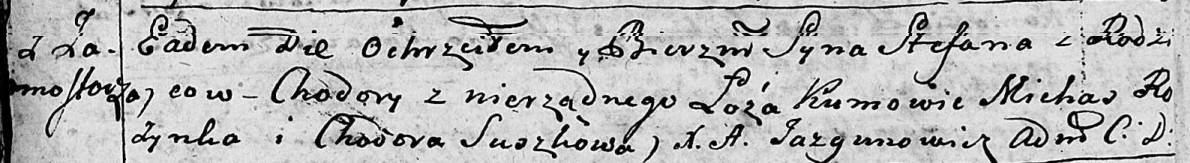 z Za- Eadem Die Ochrzciłem y Bierzm Syna Stefana z Rodzi
mostocza, cow - Chodory z nierządnego Łoża Kumowie Michas Ro
żynka i Chodora Suszkowa, X. A. Jazgunowicz Adm C: D: